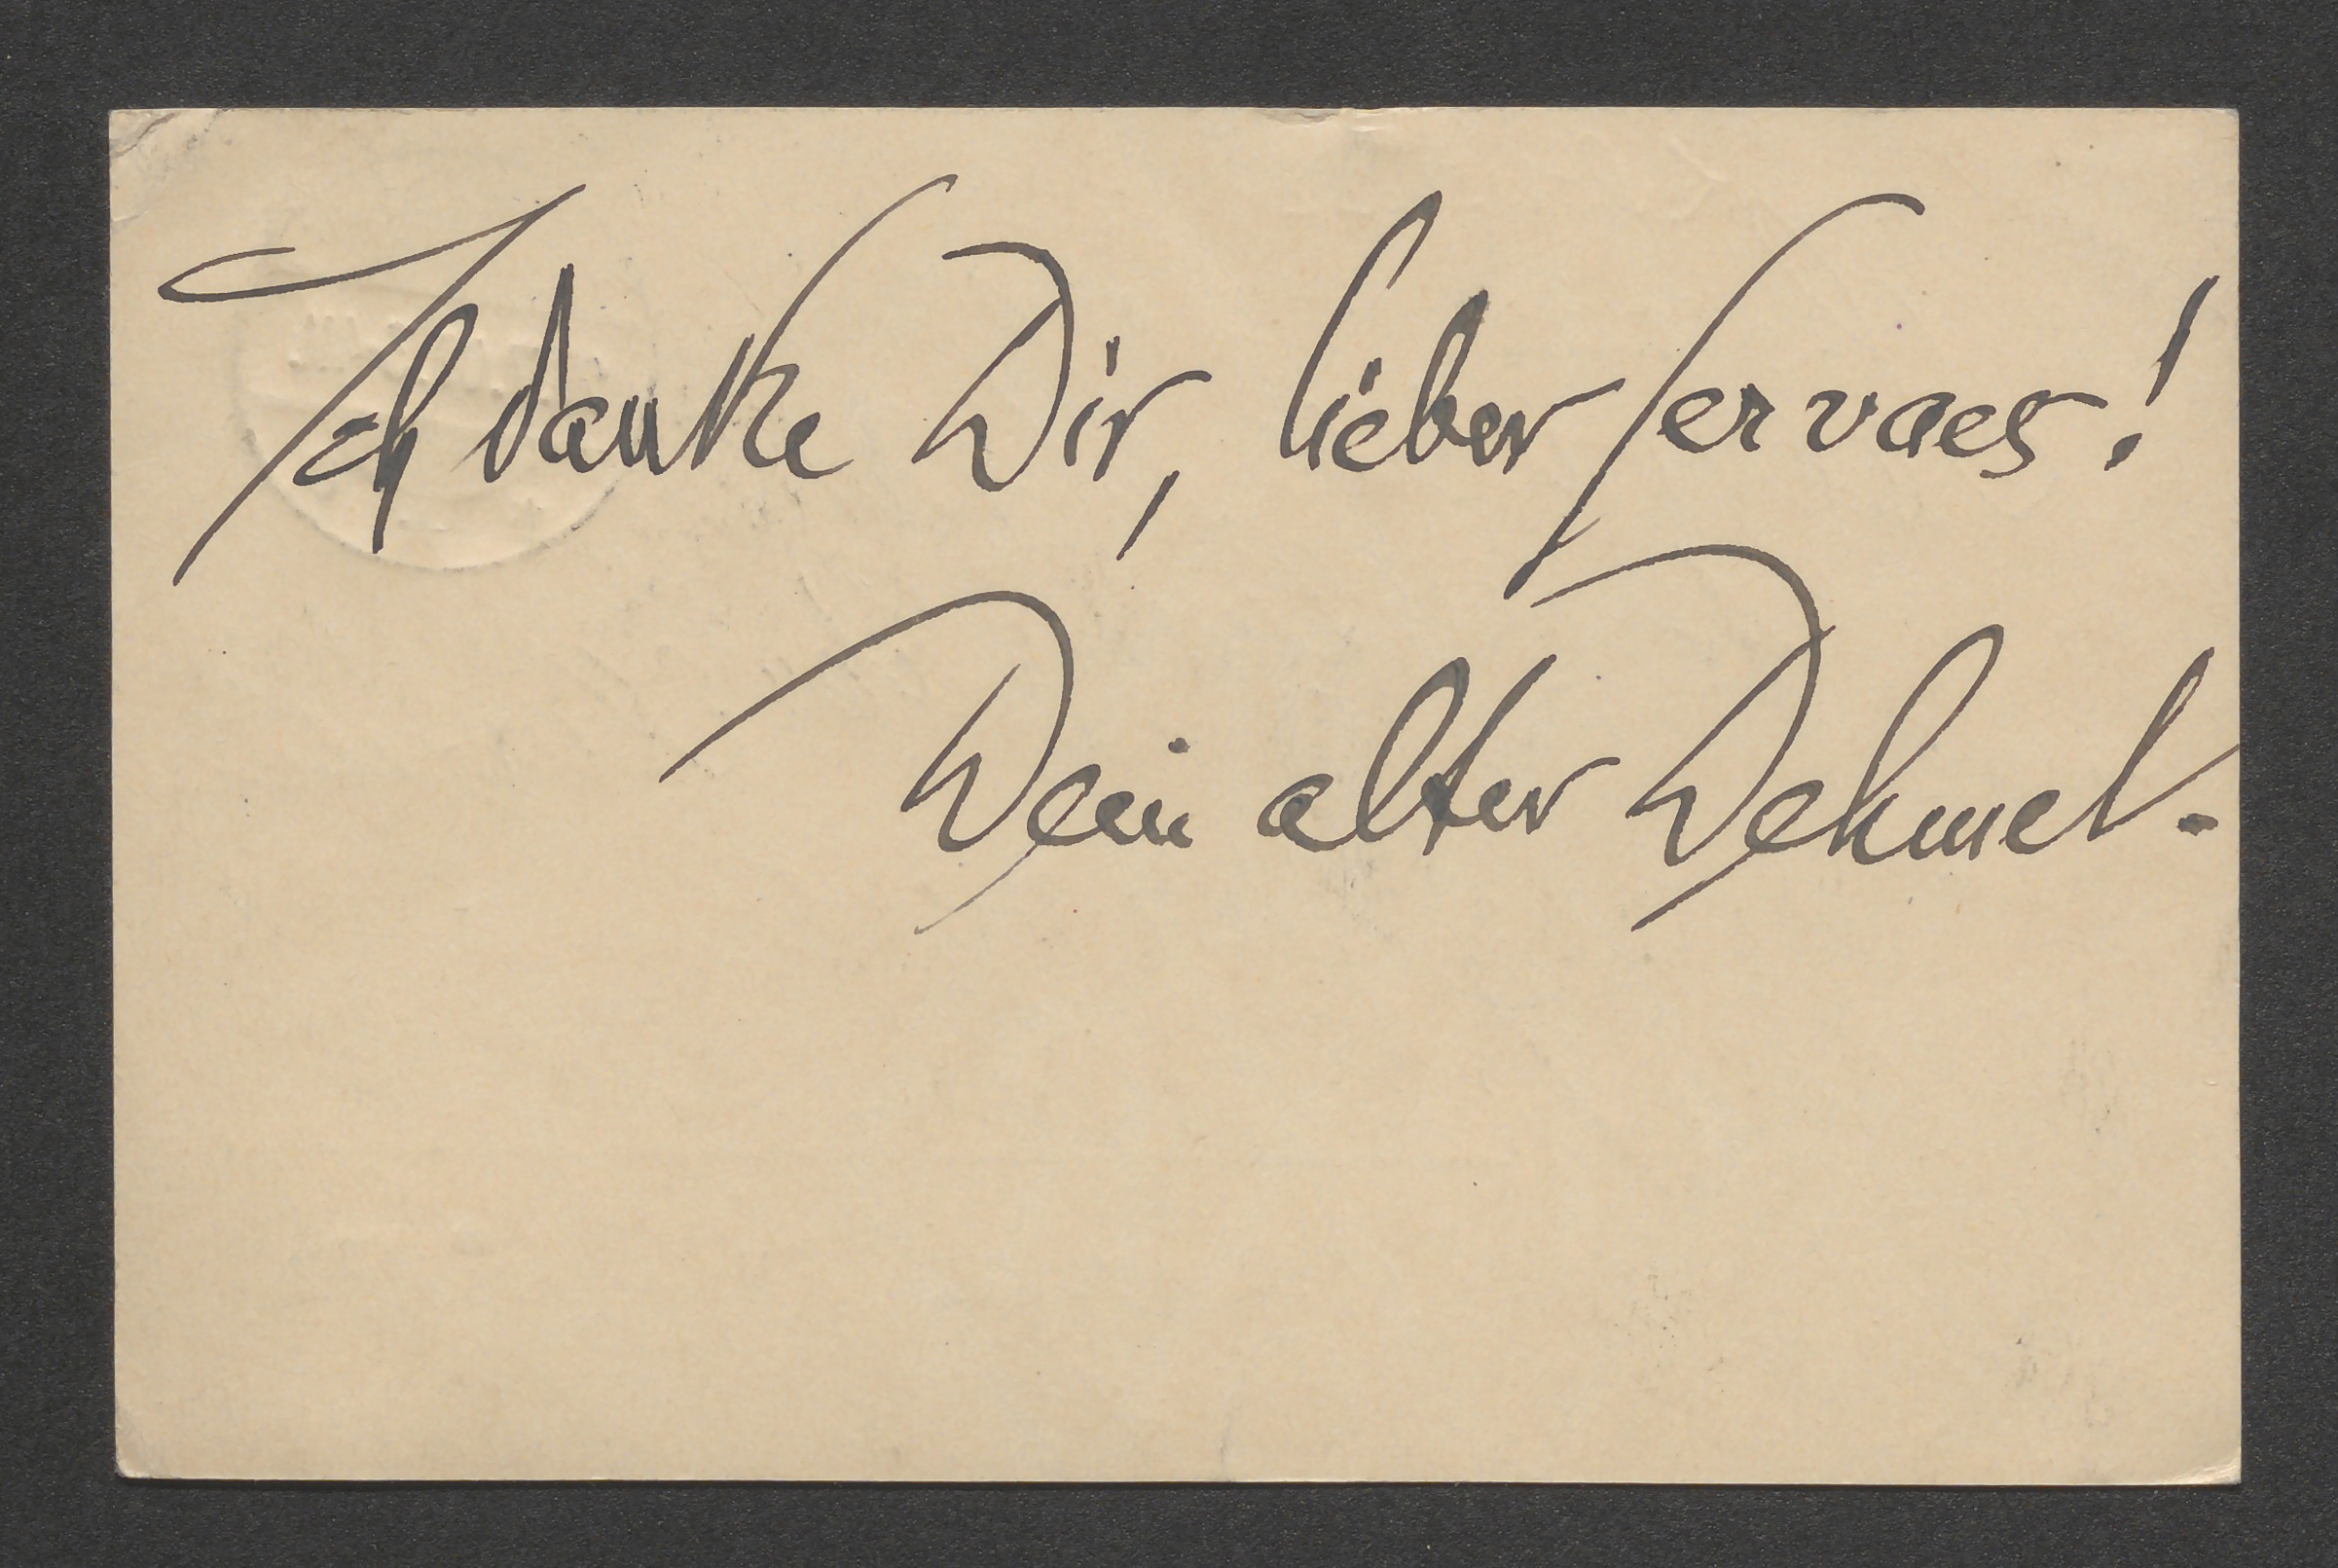 Ich danke Dir, lieber Servaes!
Dein alter Dehmel.